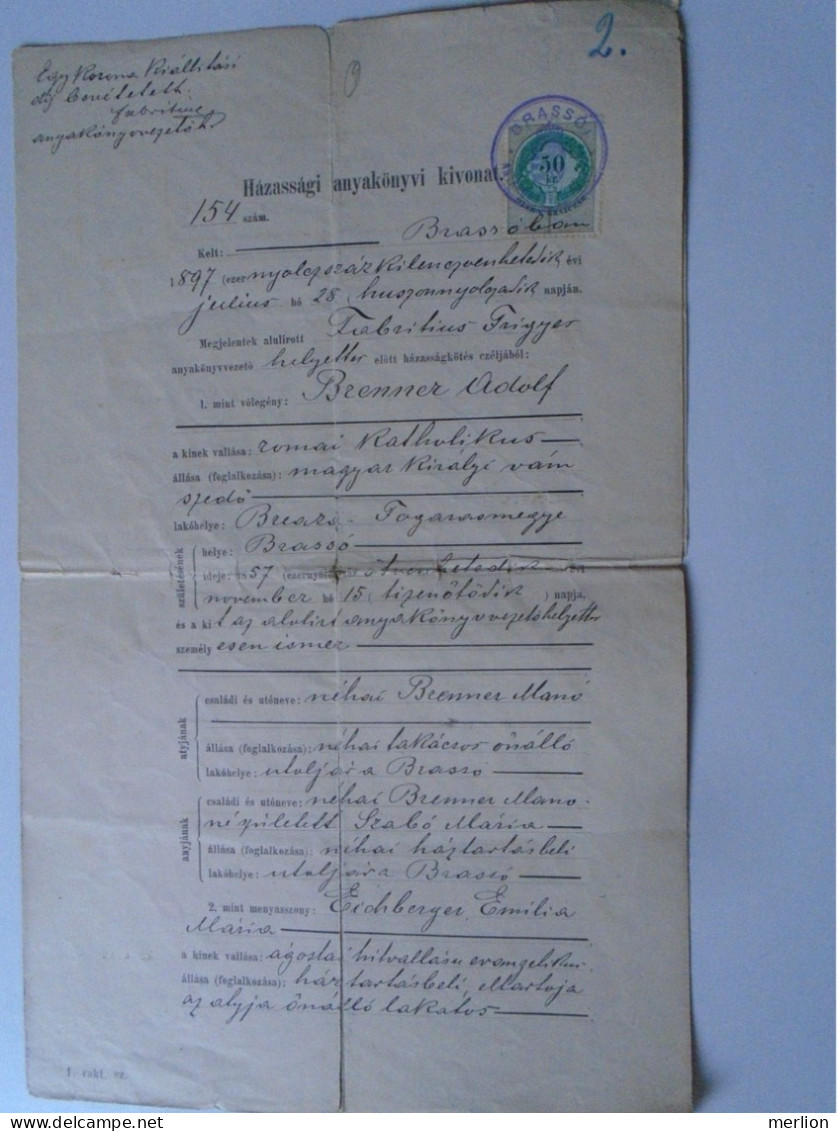 2.
Egy Korona Kiállitási
díj bevétetett.
Fabritius
anyakönyvvezető h.
BRASSÓ
50
kr.
Házassági anyakönyvi kivonat.
154 szám.
Kelt: Brassóban
1897 (ezernyolczszázkilenczvenhetedik évi
július hó 28 (huszonnyolczadik napján.
Megjelentek alulírott Fabritius Frigyes
anyakönyvvezető helyettes előtt házasságkötés czéljából:
1. mint vőlegény: Brenner Adolf
a kinek vallása: római katholikus
állása (foglalkozása): magyar királyi vám
szedő
lakóhelye: Breaza Fogarasmegye
születésének
helye: Brassó
ideje: 1857 ötvenhetedik évi
november hó 15 (tizenötödik) napja,
és a kit az alulirt anyakönyvvezetőhelyettes
személyesen ismer
atyjának
családi és utóneve: néhai Brenner Manó
állása (foglalkozása): néhai takácsos önálló
lakóhelye: utoljára Brassó
anyjának
családi és utóneve: néhai Brenner Mano
né született Szabó Mária
állása (foglalkozása): néhai háztartásbeli
lakóhelye: utoljára Brassó
2. mint menyasszony: Eichberger Emilia
Mária
a kinek vallása: ágostai hitvallásu evangelikus
állása (foglalkozása): háztartásbeli, eltartója
az atyja önálló lakatos
1. rakt. sz.
merlion